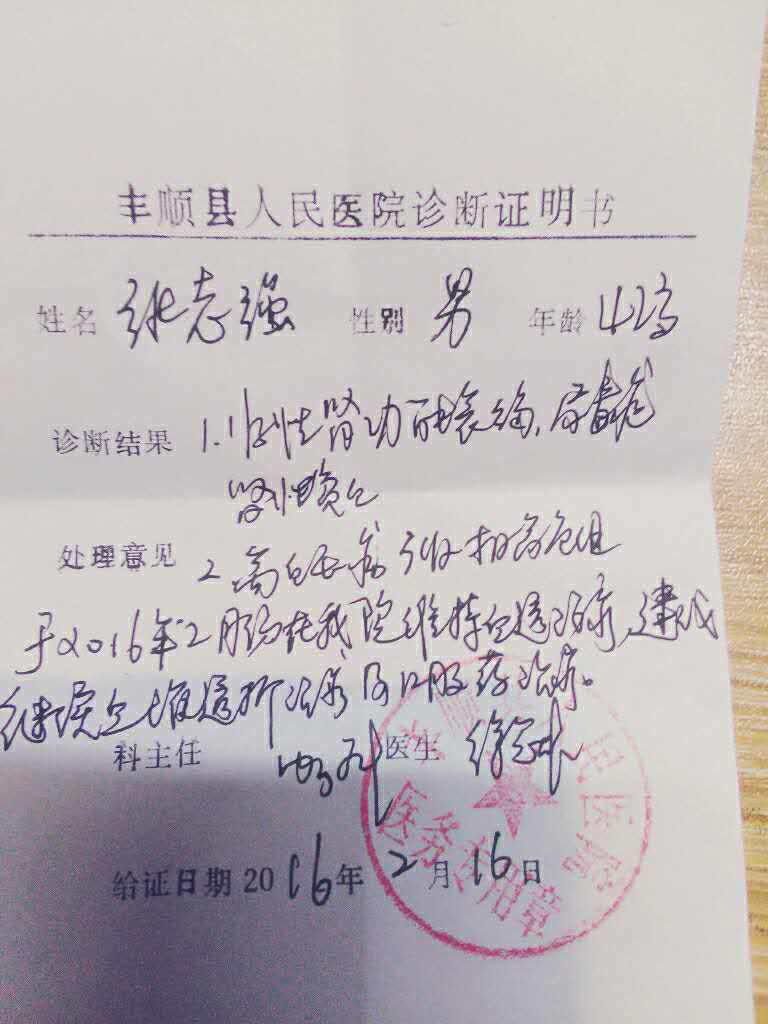 丰顺县人民医院诊断证明书
姓名 张志强 性别 男 年龄 42岁
诊断结果 1.慢性肾功能衰竭、尿毒症
肾性贫血
处理意见 2.高血压病
于2016年2月 在我院维持血透治疗,建议
继续血 透 治疗及口服药治疗。
科主任 医生
民医院
医务专用章
给证日期2016年2月16日